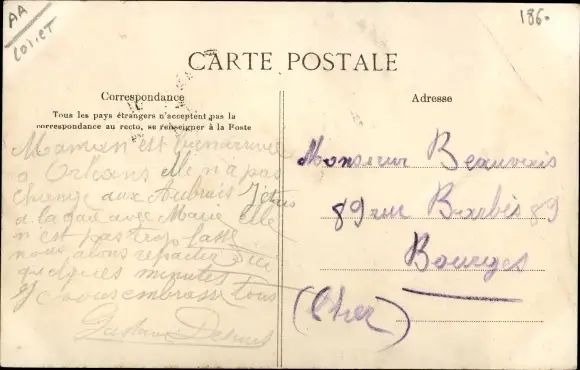 AA
Loiret
186.
CARTE POSTALE
Correspondance
Tous les pays étrangers n'acceptent pas la
correspondance au recto, se renseigner à la Poste
Maman est bien arrivée
a Orléans elle n'a pas
changé aux Aubrais J'étais
a la gare avec Marie elle
n'est pas trop lasse
nous alons repartir d'ici
quelques minutes
Je vous embrasse tous
Gustave
Adresse
Monsieur Beauvais
89 rue Barbès 89
Bourges
(Cher)